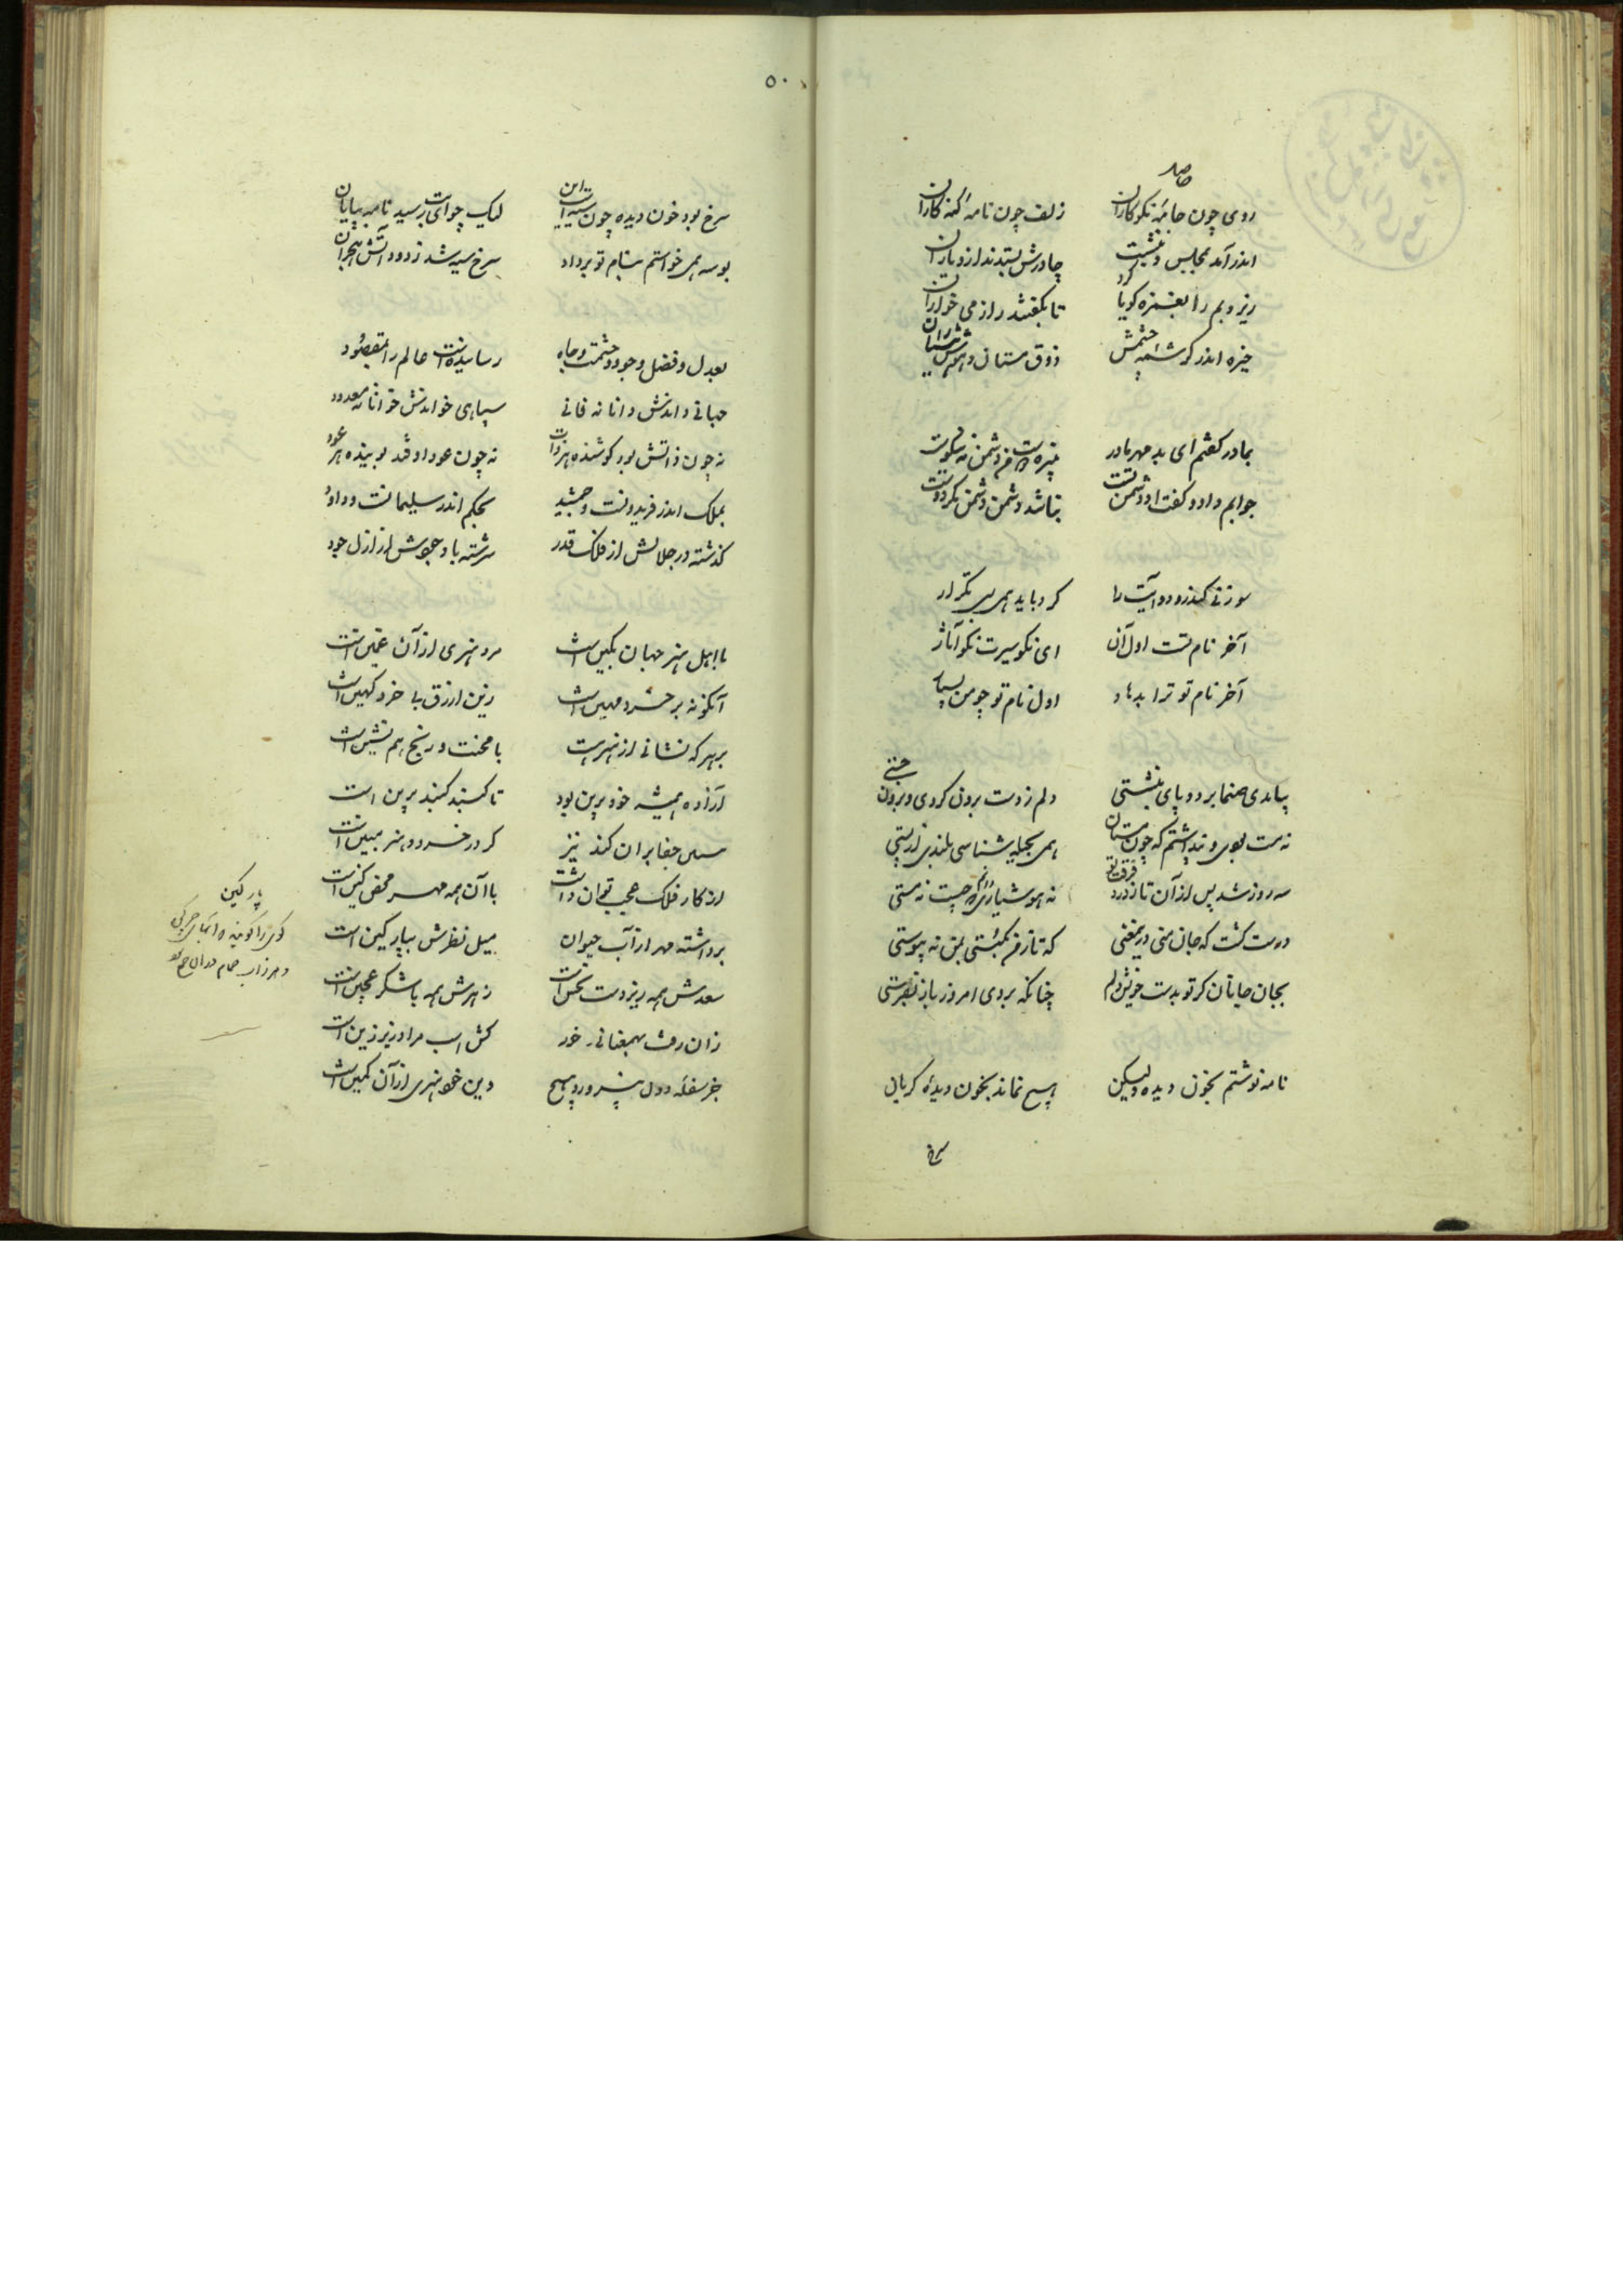 روی چون جامهٔ نکوکاران زلف چون نامهٔ گنه کاران
اندر آمد بمجلس و بنشست چادرش بستدند ازو یاران
زیر و بم را بغمزه گویا کرد تا بگفتند راز می خواران
خیره اندر کرشمه چشمش ذوق مستان و هوش هشیاران
بمادر گفتم ای بد مهر مادر
جوابم داد و گفت او دشمن تست نباشد دشمن دشمن بکر دوست
سوزنی کندرو دو آیت را کرد باید همی تکرار
آخر نام تست اول آن ای نکو سیرت نکو آثار
آخر نام تو ترا بدهاد اول نام تو چو من بسیار
بیامدی صنما بر دو پای بنشستی دلم ز دست برون کردی و برون جستی
نه مست بودی و پنداشتم که چون مستان همی بحیله شناسی بلندی از پستی
سه روز شد پس از آن تا ز درد فرقت تو نه هوشیاری دانم که چیست نه مستی
درست گشت که جان منی در معنی که تا ز من بگسستی بمن نه پیوستی
بجان جانان گر تو بدست خویش دلم چنانکه بردی امروز باز نفرستی
نامه نوشتم بخون دیده ولیکن هیچ نماند بخون دیدهٔ گریان
سرخ
۵۰
سرخ بود خون دیده چون سیه است این لیک چو ای بت رسید نامه بپایان
بوسه همی خواستم بنام تو بر داد سرخ سیه شد ز دود آتش هجران
بعدل و فضل و جود و حشمت و جاه رسانیده است عالم را بمقصود
جهانی داندش دانا نه فانی سپاهی خواندش خوانا نه معدود
نه چون ذاتش بود گوشنده هر ذات نه چون عود او فتد بوینده هر عود
بملک اندر فریدونست و جمشید بحکم اندر سلیمانست و داود
گذشته در جلالش از فلک قدر سرشته با وجودش از ازل جود
با اهل هنر جهان بکین است مرد هنری از آن غمین است
آنگونه بر خسرد مهین است زین ازرق بی خرد کهین است
بر هر که نشانی از هنر هست با محنت و رنج هم نشین است
آزاده همیشه خود برین بود تا گنبد گنبد برین است
مسکین جفا بر آن کند نیز کز در خرد و هنر مبین است
از کار فلک عجب توان داشت با آن همه مهر محض کین است
برداشته مهر از آب حیوان میل نظرش بپارگین است
سعدش همه ریزدست نحس است زهرش همه با شکر عجین است
زان رفت بهمعنانی خر کش اسب مراد زیر زین است
جز سفله و دون نپرورد هیچ وین خو هنری از آن کمین است
پارگین